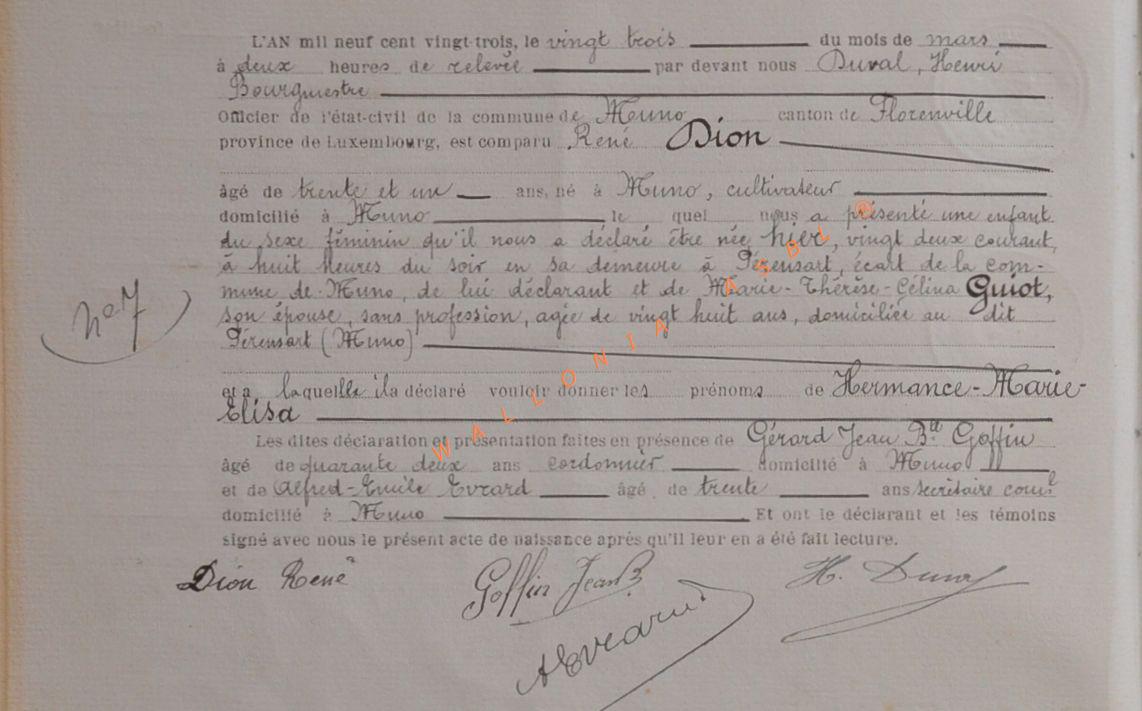 L'AN mil neuf cent vingt-trois, le vingt trois du mois de mars
à deux heures de relevée par devant nous Duval, Henri
Bourgmestre
Officier de l'état-civil de la commune de Muno canton de Florenville
province de Luxembourg, est comparu René Dion
âgé de trente et un ans, né à Muno, cultivateur
domicilié à Muno le quel nous a présenté une enfant
du sexe féminin qu'il nous a déclaré être née hier, vingt deux courant,
à huit heures du soir en sa demeure à Pérensart, écart de la com-
mune de Muno, de lui déclarant et de Marie-Thérèse-Célina Guiot,
son épouse, sans profession, agée de vingt huit ans, domiciliée au dit
Pérensart (Muno)
n° 7
et a laquelle il a déclaré vouloir donner les prénoms de Hermance-Marie-
Elisa
Les dites déclaration et présentation faites en présence de Gérard Jean Bte Goffin
âgé de quarante deux ans cordonnier domicilié à Muno
et de Alfred-Emile Evrard âgé de trente ans secrétaire coml
domicilié à Muno Et ont le déclarant et les témoins
signé avec nous le présent acte de naissance après qu'il leur en a été fait lecture.
Dion René Goffin Jean B H. Duval
AEvrard
WALLONIA ASBL ®